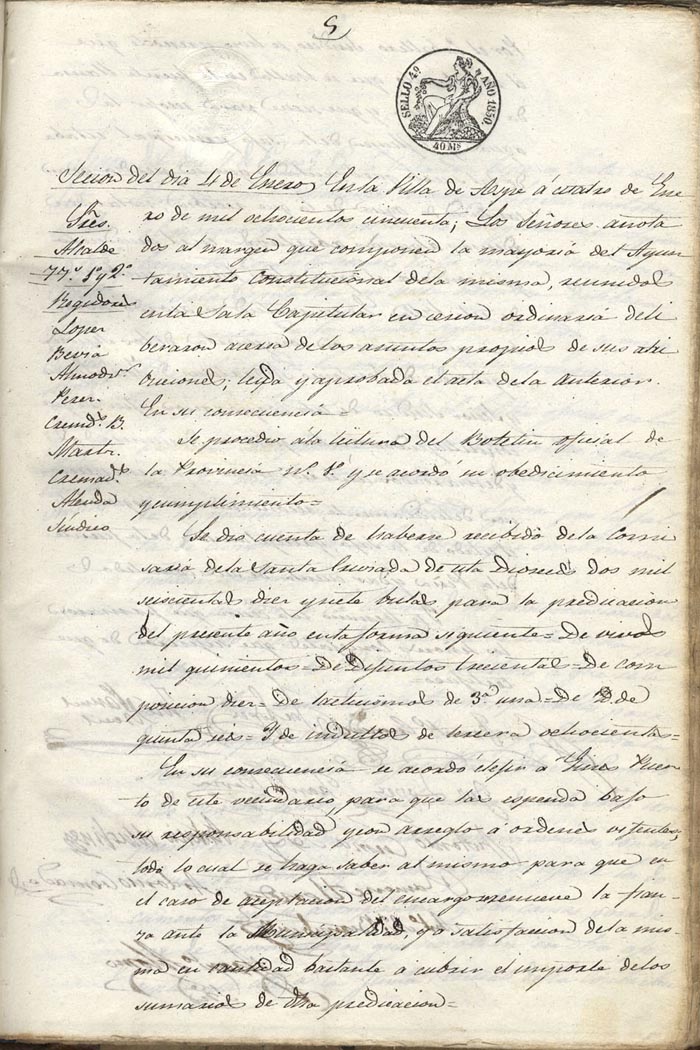 5
SELLO 4º AÑO 1850.
40 Ms
Secion del dia 4 de Enero, En la Villa de Aspe á cuatro de Ene
ro de mil ochocientos cincuenta; Los Señores anota
dos al margen que componen la mayoria del Ayun
tamiento Constitucional dela misma, reunidos
en la Sala Capitular en cesion ordinaria deli
beraron acersa de los asuntos propios de sus atri
buciones; leyda y aprobada el acta dela anterior.
En su consecuencia =
Se procedio á la leitura del Boletin oficial de
la Provincia nº. 1º. y se acordó su obedecimiento
y cumplimiento =
Se dio cuenta de haberse recibido dela Comi
saria dela Santa Cruzada de esta Diocesis dos mil
seiscientas diez y siete bulas para la predicacion
del presente año en la forma siguiente = De vivos
mil quinientos = De Difuntos trecientas = De com
posicion diez = De lacticinios de 3ª una = De Yd. de
quinta seis = Y de indultos de tercera ochocientas =
En su consecuencia se acordó elejir a Gines Puer
to de este vecindario, para que las espenda bajo
su responsabilidad y con arreglo á ordenes vijentes,
todo lo cual se haga saber al mismo para que en
el caso de aceptacion del encargo renueve la fian-
za ante la Municipalidad, y a satisfaccion dela mis-
ma en cantidad bastante á cubrir el importe delos
sumarios de dha predicacion =
Sres.
Alcalde
TTs. 1º y 2º
Regidores
Lopez
Bevia
Almodr.
Perez.
Cremds. B.
Martz.
Cremads.
Alenda
Sindico